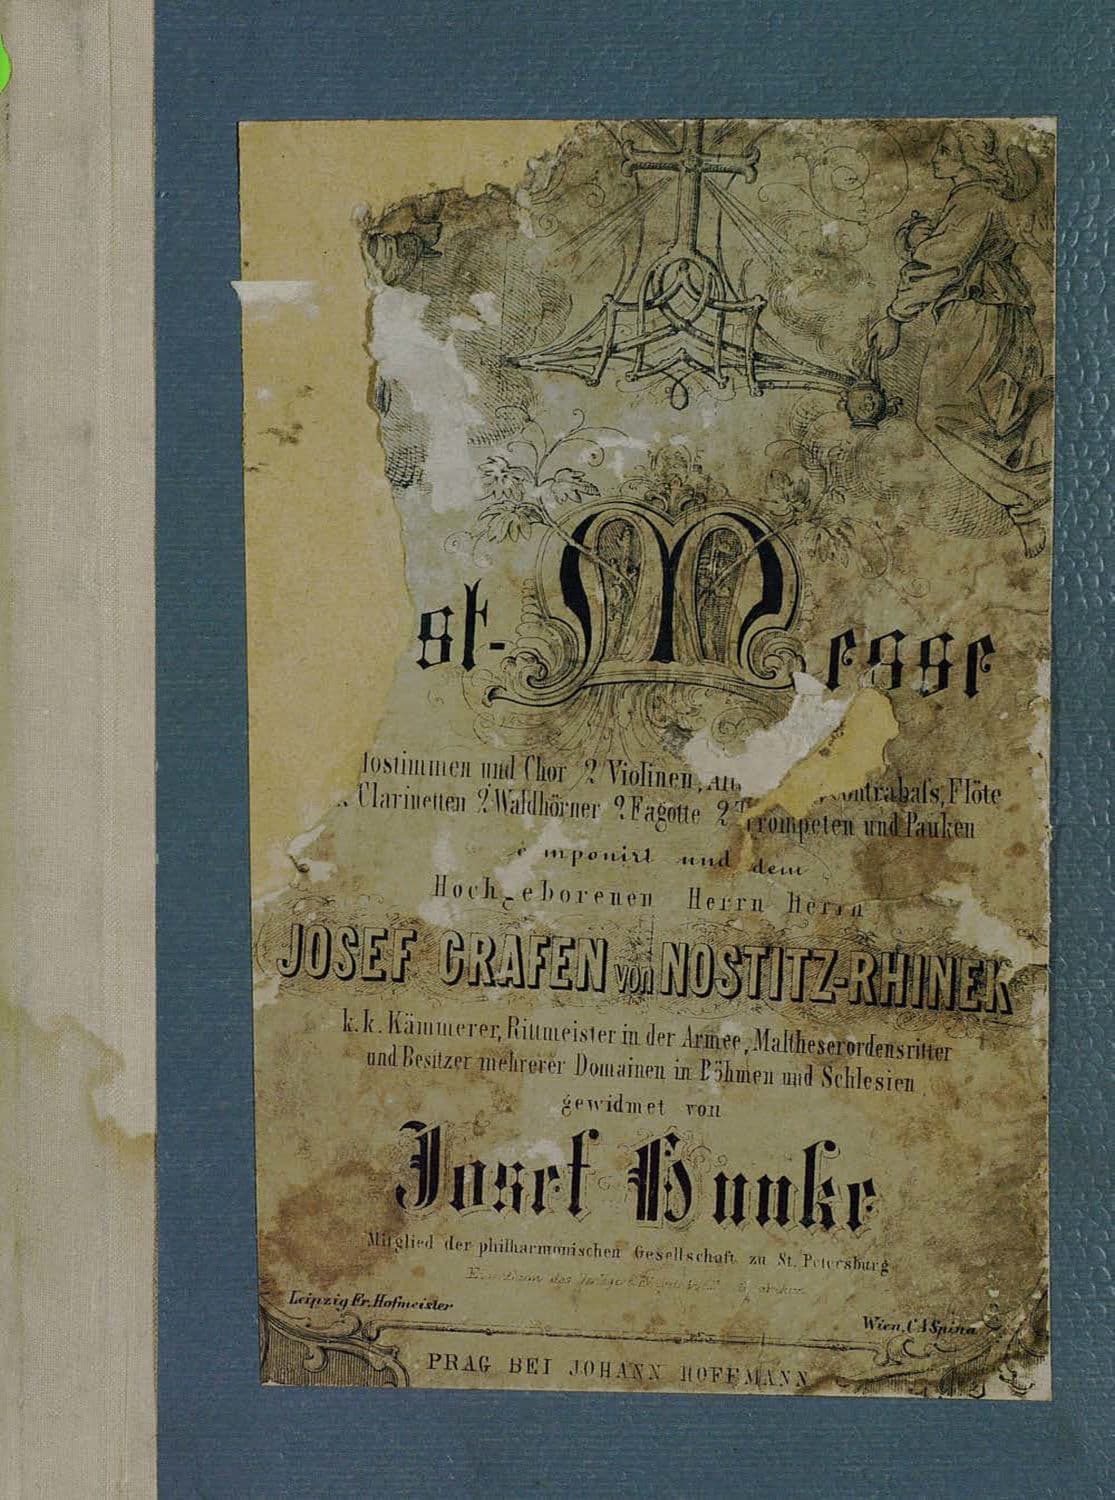 st-Messe
tostimmen und Chor 2 Violinen, Contrabaſs, Flöte
Clarinetten 2 Waldhörner 2 Fagotte 2 Trompeten und Pauken
componirt und dem
Hochgeborenen Herrn Herrn
JOSEF GRAFEN von NOSTITZ-RHINEK
k. k. Kämmerer, Rittmeister in der Armee, Maltheserordensritter
und Besitzer mehrerer Domainen in Böhmen und Schlesien
gewidmet von
Josef Hunke
Mitglied der philharmonischen Gesellschaft zu St. Petersburg
Leipzig Fr. Hofmeister
Wien, C A Spina
PRAG BEI JOHANN HOFFMANN